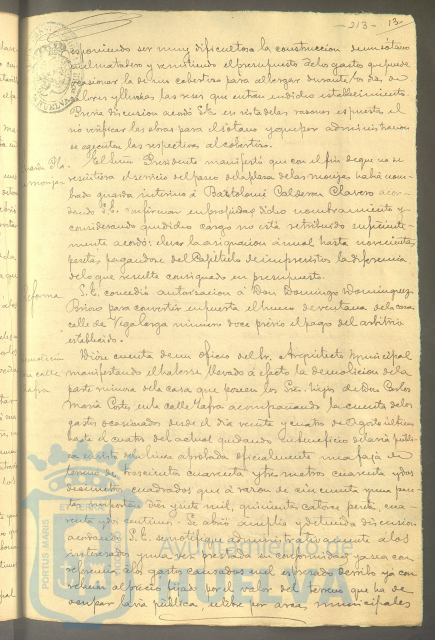 -213- 13-
esponiendo ser muy dificultosa la construccion de un sótano
en el matadero y remitiendo el presupuesto de los gastos que puede
ocasionar la de un cobertizo para albergar durante los dias de
calores y lluvias las reses que entran en dicho establecimiento.
Previa discusion acordó S.E. en vista de las razones espuestas el
no verificar las obras para el sótano y que por administracion
se ejecuten las respectivas al cobertizo.
El Señor Presidente manifestó que con el fin de que no se
resintiera el servicio del paseo de la plaza de las monjas habia nom-
brado guarda interino á Bartolomé Calderon Clavero acor-
dando S.E. confirmar en propiedad dicho nombramiento y
considerando que dicho cargo no está retribuido suficiente-
mente acordó: elevar la asignacion anual hasta novecientas
pesetas, pagandose del Capítulo de imprevistos la diferencia
de lo que resulta consignado en presupuesto.
S.E. concedió autorizacion á Don Domingo Dominguez
para convertir en puerta el hueco de ventana de la casa
calle de Vegalarga número doce prévio el pago del arbitrio
establecido.
Dióse cuenta de un oficio del Sr. Arquitecto Municipal
manifestando el haberse llevado á efecto la demolicion de la
parte ruinosa de la casa que poseen los Sres. hijos de Don Carlos
María Corte, en la calle Zafra acompañando la cuenta de los
gastos ocasionados desde el dia veinte y cuatro de Agosto último
hasta el cuatro del actual quedando en beneficio de la via públi-
ca en vista de la linea aprobada oficialmente una faja de
terreno de trescientos cuarenta y tres metros cuarenta y dos
decimetros cuadrados que á razon de cincuenta
diez y siete mil, quinientas catorce pesetas, cua-
renta y dos centimos. Se abrió amplia y detenida discusion
acordando S.E. se notifique administrativamente á los
interesados que si se prestan en conformidad, ya sea con
referencia á los gastos causados en el espresado derribo yá con
relacion al precio fijado por el valor del terreno que ha de
ocupar la via pública,
municipales
Plaza
monjas
demolicion
calle
AYUNTAMIENTO DE HUELVA
PORTUS MARIS